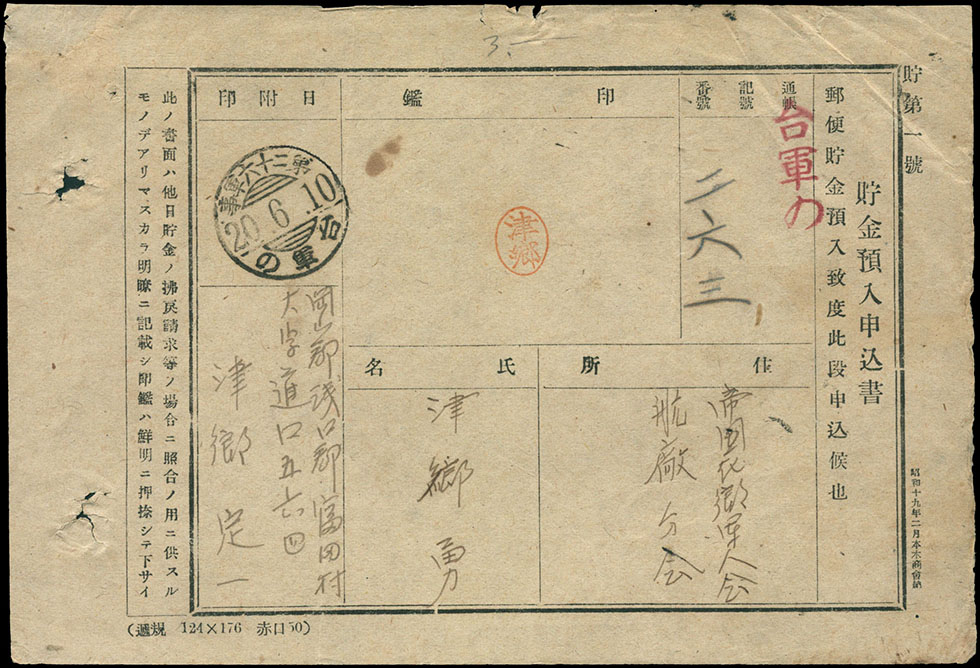 3.—
貯第一號
貯金預入申込書
郵便貯金預入致度此段申込候也
昭和十九年二月本木商會納
通帳
記號
番號
台軍の
二六三
印鑑
津郷
日附印
第二十六軍事
20.6.10
台軍の
住所
帝国在郷軍人会
航廠分会
氏名
津郷勇
岡山郡浅口郡富田村
大字道口五六四
津郷定一
此ノ書面ハ他日貯金ノ拂戻請求等ノ場合ニ照合ノ用ニ供スル
モノデアリマスカラ明瞭ニ記載シ印鑑ハ鮮明ニ押捺シテ下サイ
(遞規 124×176 赤口50)